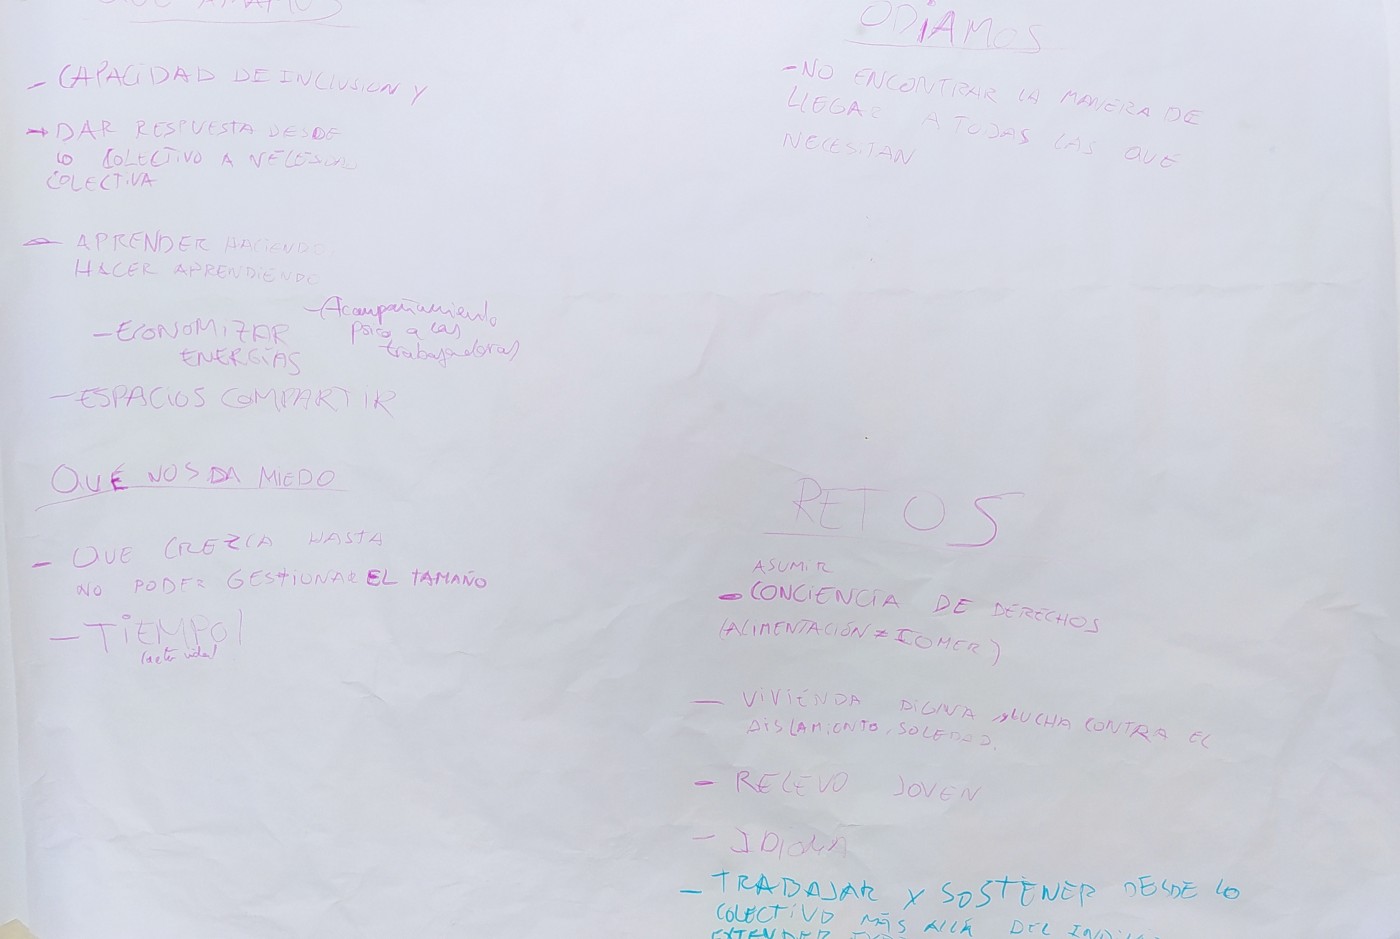 QUÉ AMAMOS
- CAPACIDAD DE INCLUSION Y
- DAR RESPUESTA DESDE
LO COLECTIVO A NECESIDAD
COLECTIVA
- APRENDER HACIENDO
HACER APRENDIENDO
- Acompañamiento
psico a las
trabajadoras
- ECONOMIZAR
ENERGÍAS
- ESPACIOS COMPARTIR
QUÉ NOS DA MIEDO
- QUE CREZCA HASTA
NO PODER GESTIONAR EL TAMAÑO
- TIEMPO
ODIAMOS
- NO ENCONTRAR LA MANERA DE
LLEGAR A TODAS LAS QUE
NECESITAN
RETOS
ASUMIR
- CONCIENCIA DE DERECHOS
(ALIMENTACIÓN ≠ COMER)
- VIVIENDA DIGNA LUCHA CONTRA EL
AISLAMIENTO, SOLEDAD.
- RELEVO JOVEN
- IDIOMA
- TRABAJAR Y SOSTENER DESDE LO
COLECTIVO MÁS ALLÁ DEL
EXTENDER